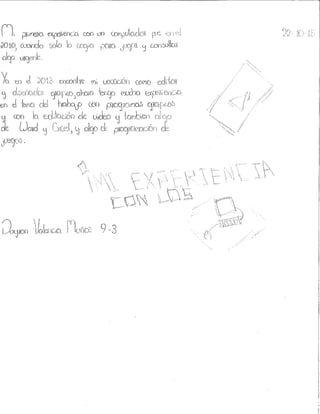 Mi primera experiencia con un computador fue en el
2010, cuando solo lo cogia para jugos y consultas
algo urgente.
Ya en el 2018 encontre mi vocación como editor
y diseñador grafico, ahora tengo mucha experiencia
en el tema del trabajo con programas graficos
y con la edición de video y tambien algo
de Word y Excel, y algo de programación de
juegos.
22-10-18
MI EXPERIENCIA
CON LOS
Dayron Valencia Muñoz 9-3